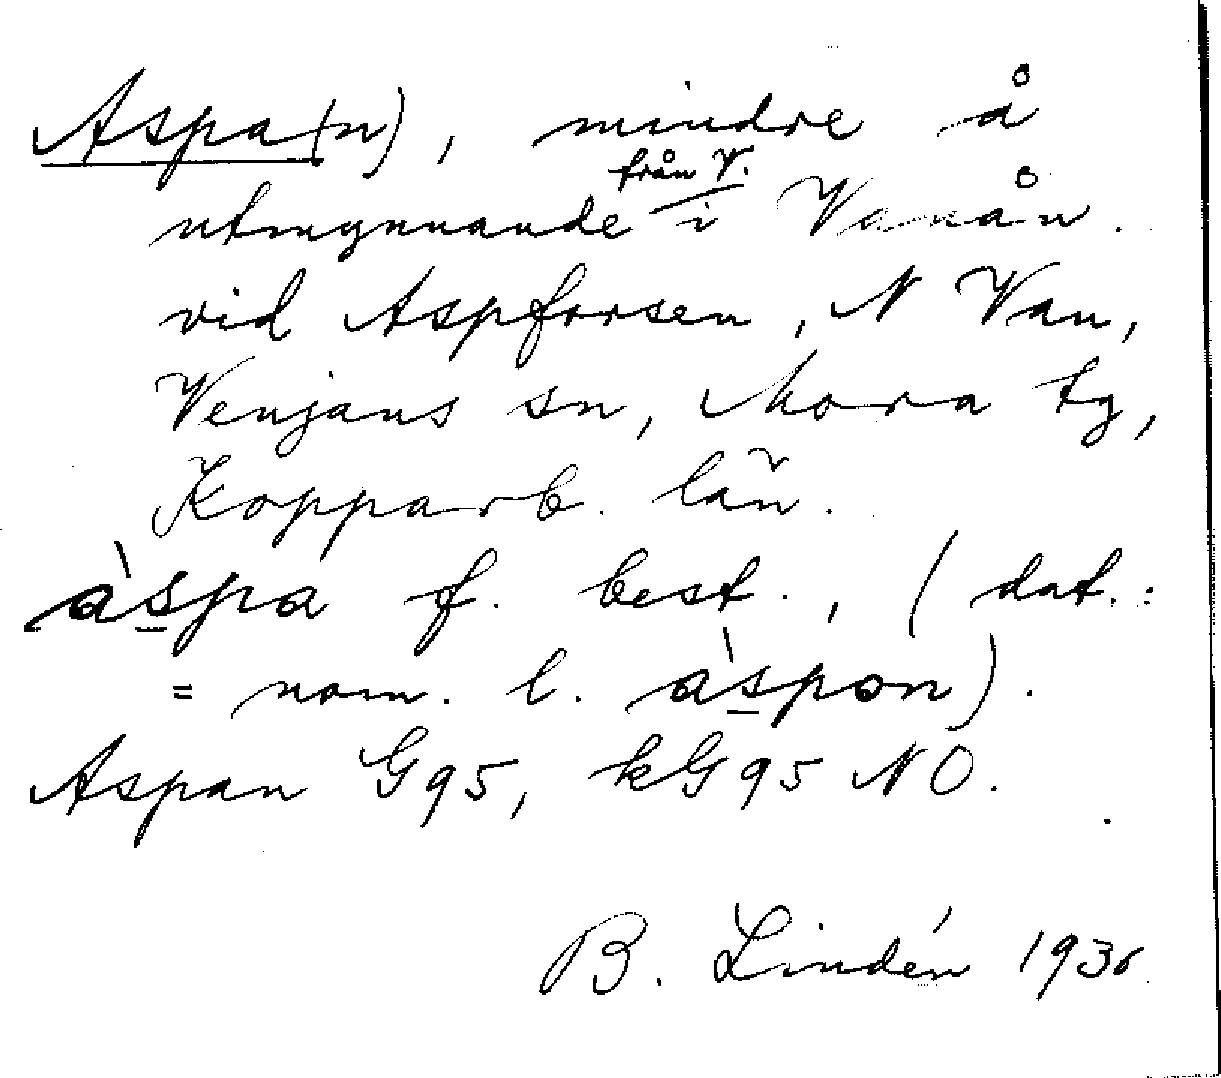 Aspa(n), mindre å
utmynnande från V. i Vanån
vid Aspforsen, N Van,
Venjans sn, Mora tg,
Kopparb. län.
àspa f. best., (dat.:
= nom. l. àspon).
Aspan G95, kG95 NO.
B. Lindén 1936.